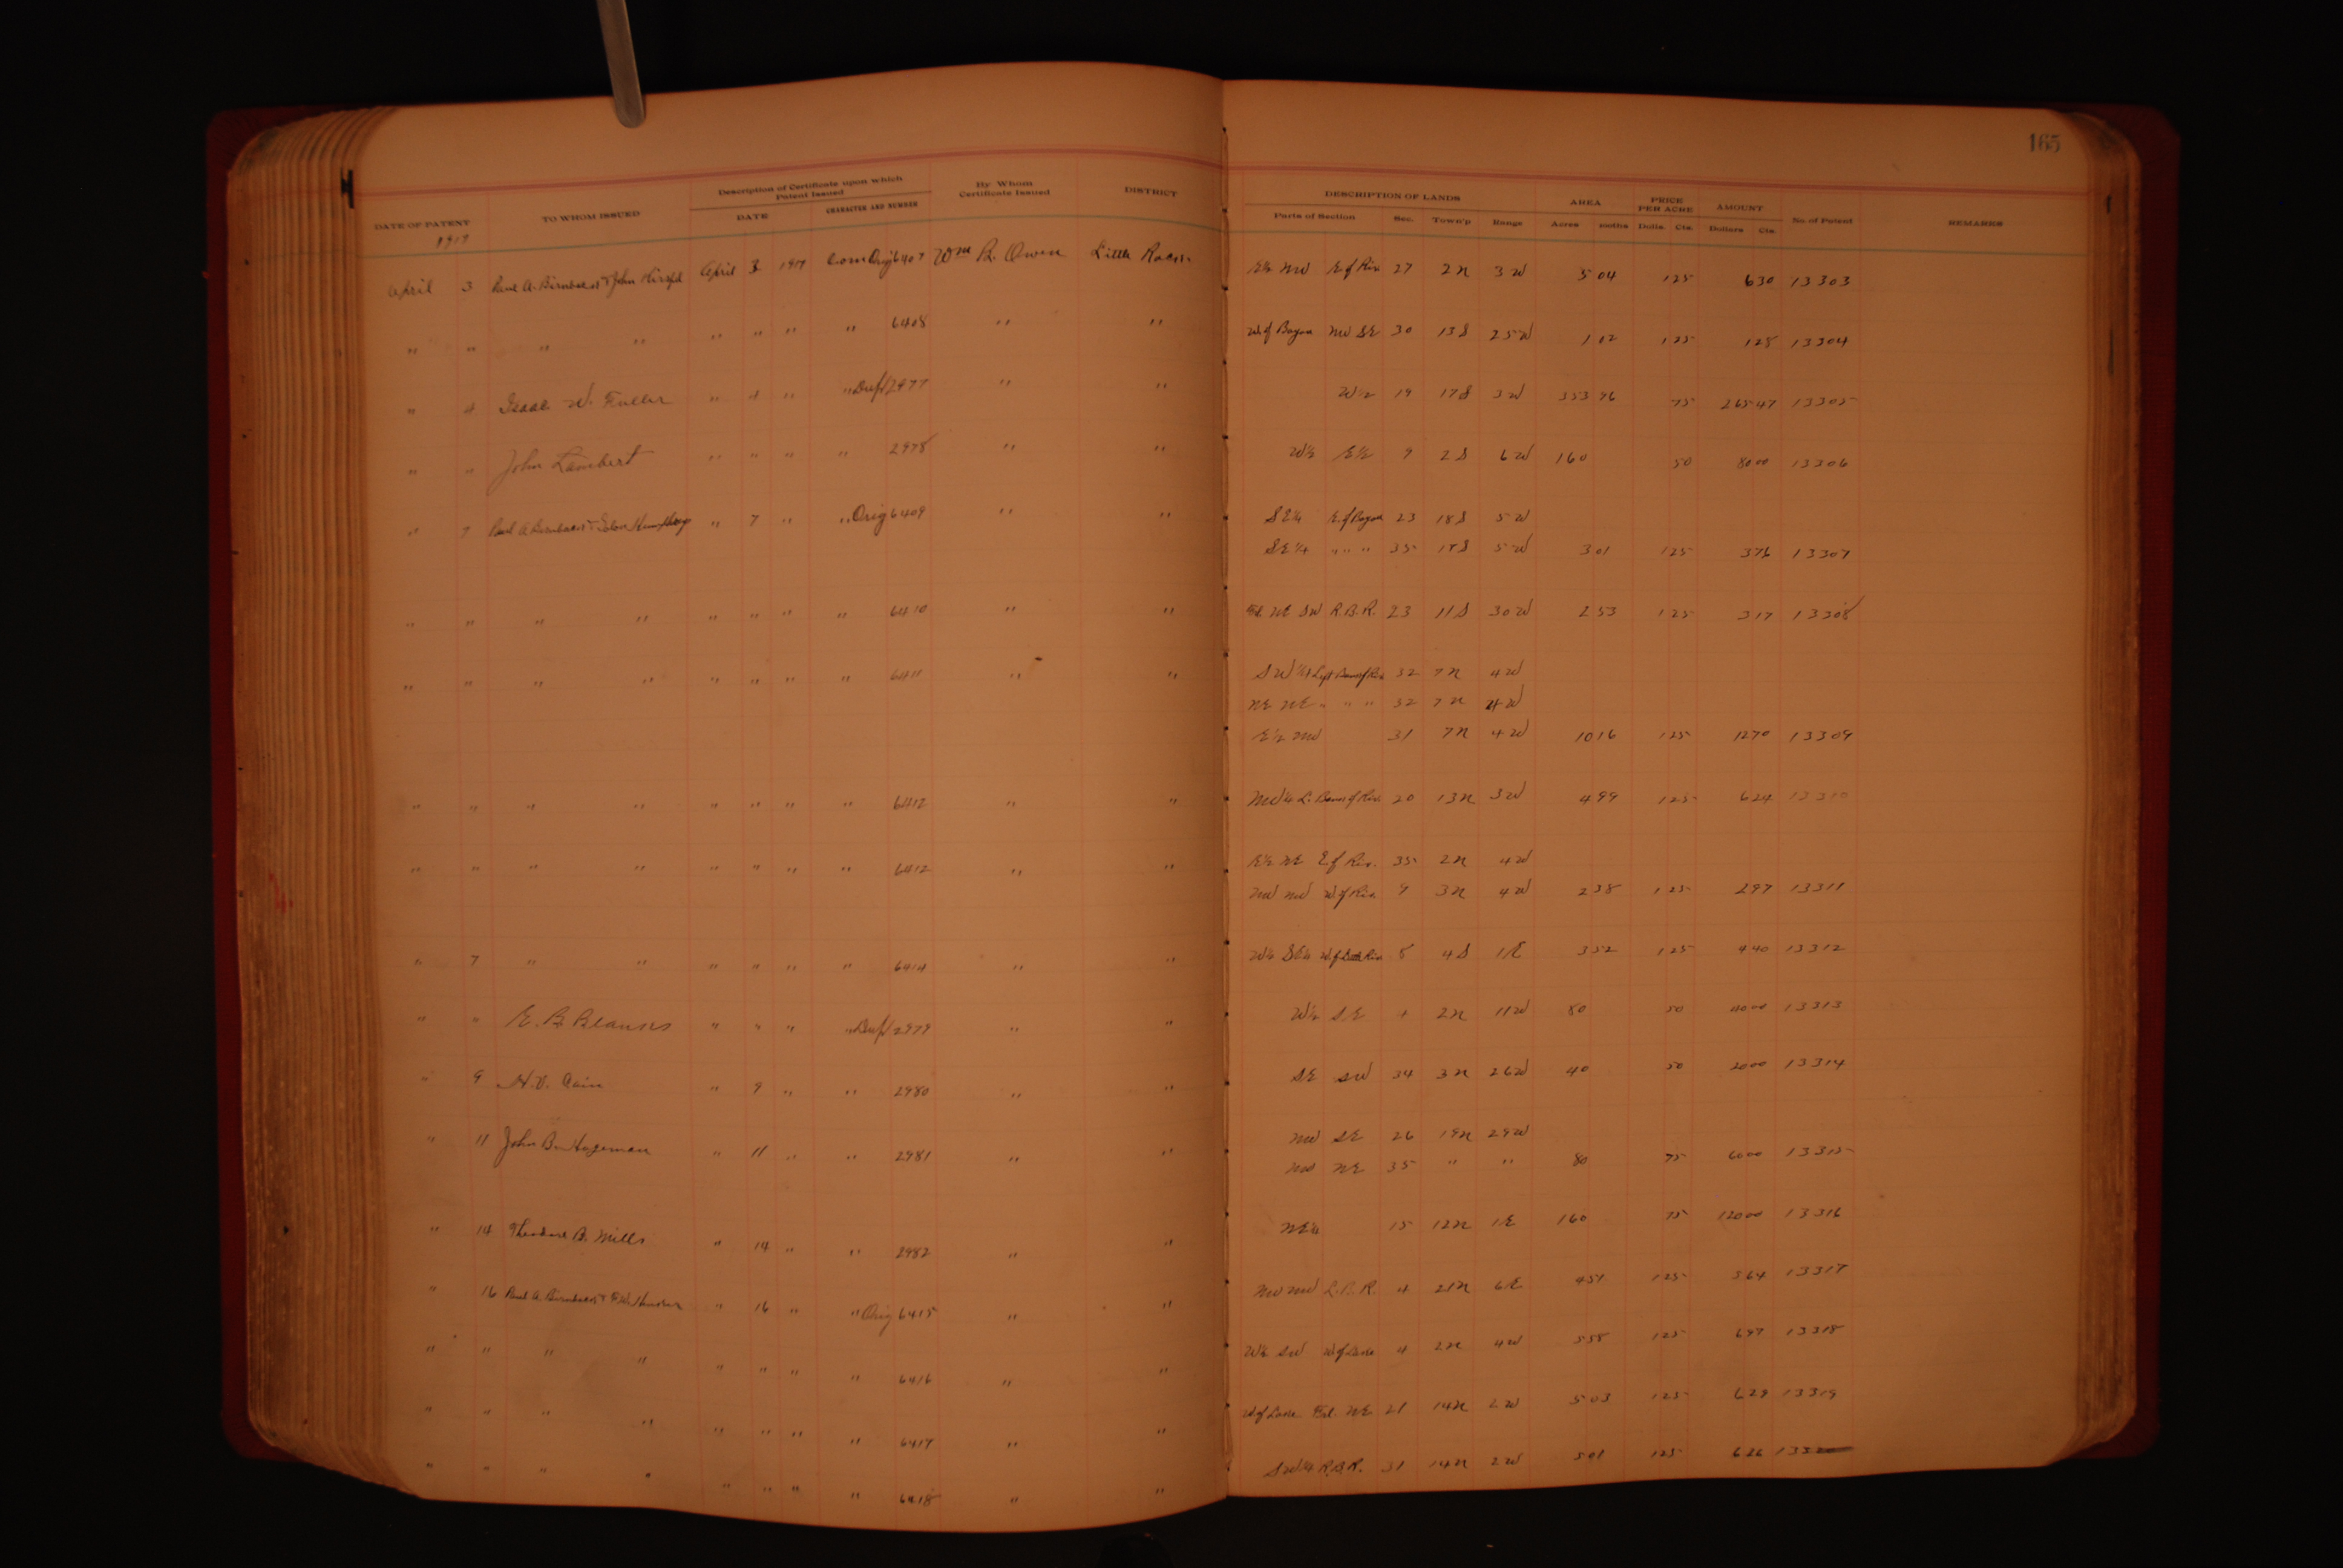 165
DATE OF PATENT TO WHOM ISSUED Description of Certificate upon which Patent Issued DATE CHARACTER AND NUMBER By Whom Certificate Issued DISTRICT DESCRIPTION OF LANDS Parts of Section Sec. Town'p Range AREA Acres PRICE PER ACRE Dolls. Cts. AMOUNT Dollars Cts. No. of Patent REMARKS
1917
April 3 Paul A. & John April 3 1917 Com Orig 6407 Wm B. Owen Little Rock E½ NW E. of Riv. 27 2N 3W 5 04 125 630 13303
" " " " " " " " 6408 " " W. of Bayou NW SE 30 13S 25W 1 02 125 128 13304
" 4 Isaac W. Fuller " 4 " " Dupl 2977 " " W½ 19 17S 3W 353 96 75 265 47 13305
" " John Lambert " " " " 2978 " " W½ E½ 9 2S 6W 160 50 80 00 13306
" 7 Paul A. & " 7 " " Orig 6409 " " SE¼ E. of Bayou 23 18S 5W
SE¼ " " " 35 18S 5W 3 01 125 376 13307
" " " " " " " " 6410 " " SW R.B.R. 23 11S 30W 2 53 125 317 13308
" " " " " " " " 6411 " " SW¼ Left of Riv. 32 7N 4W
NE NE " " " 32 7N 4W
E½ NW 31 7N 4W 10 16 125 1270 13309
" " " " " " " " 6412 " " NW¼ L. of Riv. 20 13N 3W 4 99 125 624 13310
" " " " " " " " 6412 " " E½ NE E. of Riv. 35 2N 4W
NW NW W. of Riv. 9 3N 4W 2 38 125 297 13311
" 7 " " " " " " 6414 " " W½ SE¼ W. of Riv 8 4S 1E 3 52 125 440 13312
" " E. B. " " " " Dupl 2979 " " W½ SE 4 2N 11W 80 50 40 00 13313
" 9 H. V. Cain " 9 " " 2980 " " SE SW 34 3N 26W 40 50 20 00 13314
" 11 John B. Hageman " 11 " " 2981 " " NW SE 26 19N 29W
NW NE 35 " " 80 75 60 00 13315
" 14 Theodore B. Mills " 14 " " 2982 " " NE¼ 15 12N 1E 160 75 120 00 13316
" 16 Paul A. & " 16 " " Orig 6415 " " NW NW L.B.R. 4 21N 6E 4 51 125 564 13317
" " " " " " " " 6416 " " W½ SW W of 4 2N 4W 5 58 125 697 13318
" " " " " " " " 6417 " " W of NE 21 14N 2W 5 03 125 629 13319
" " " " " " " " 6418 " " SW¼ R.B.R. 31 14N 2W 5 01 125 626 13320